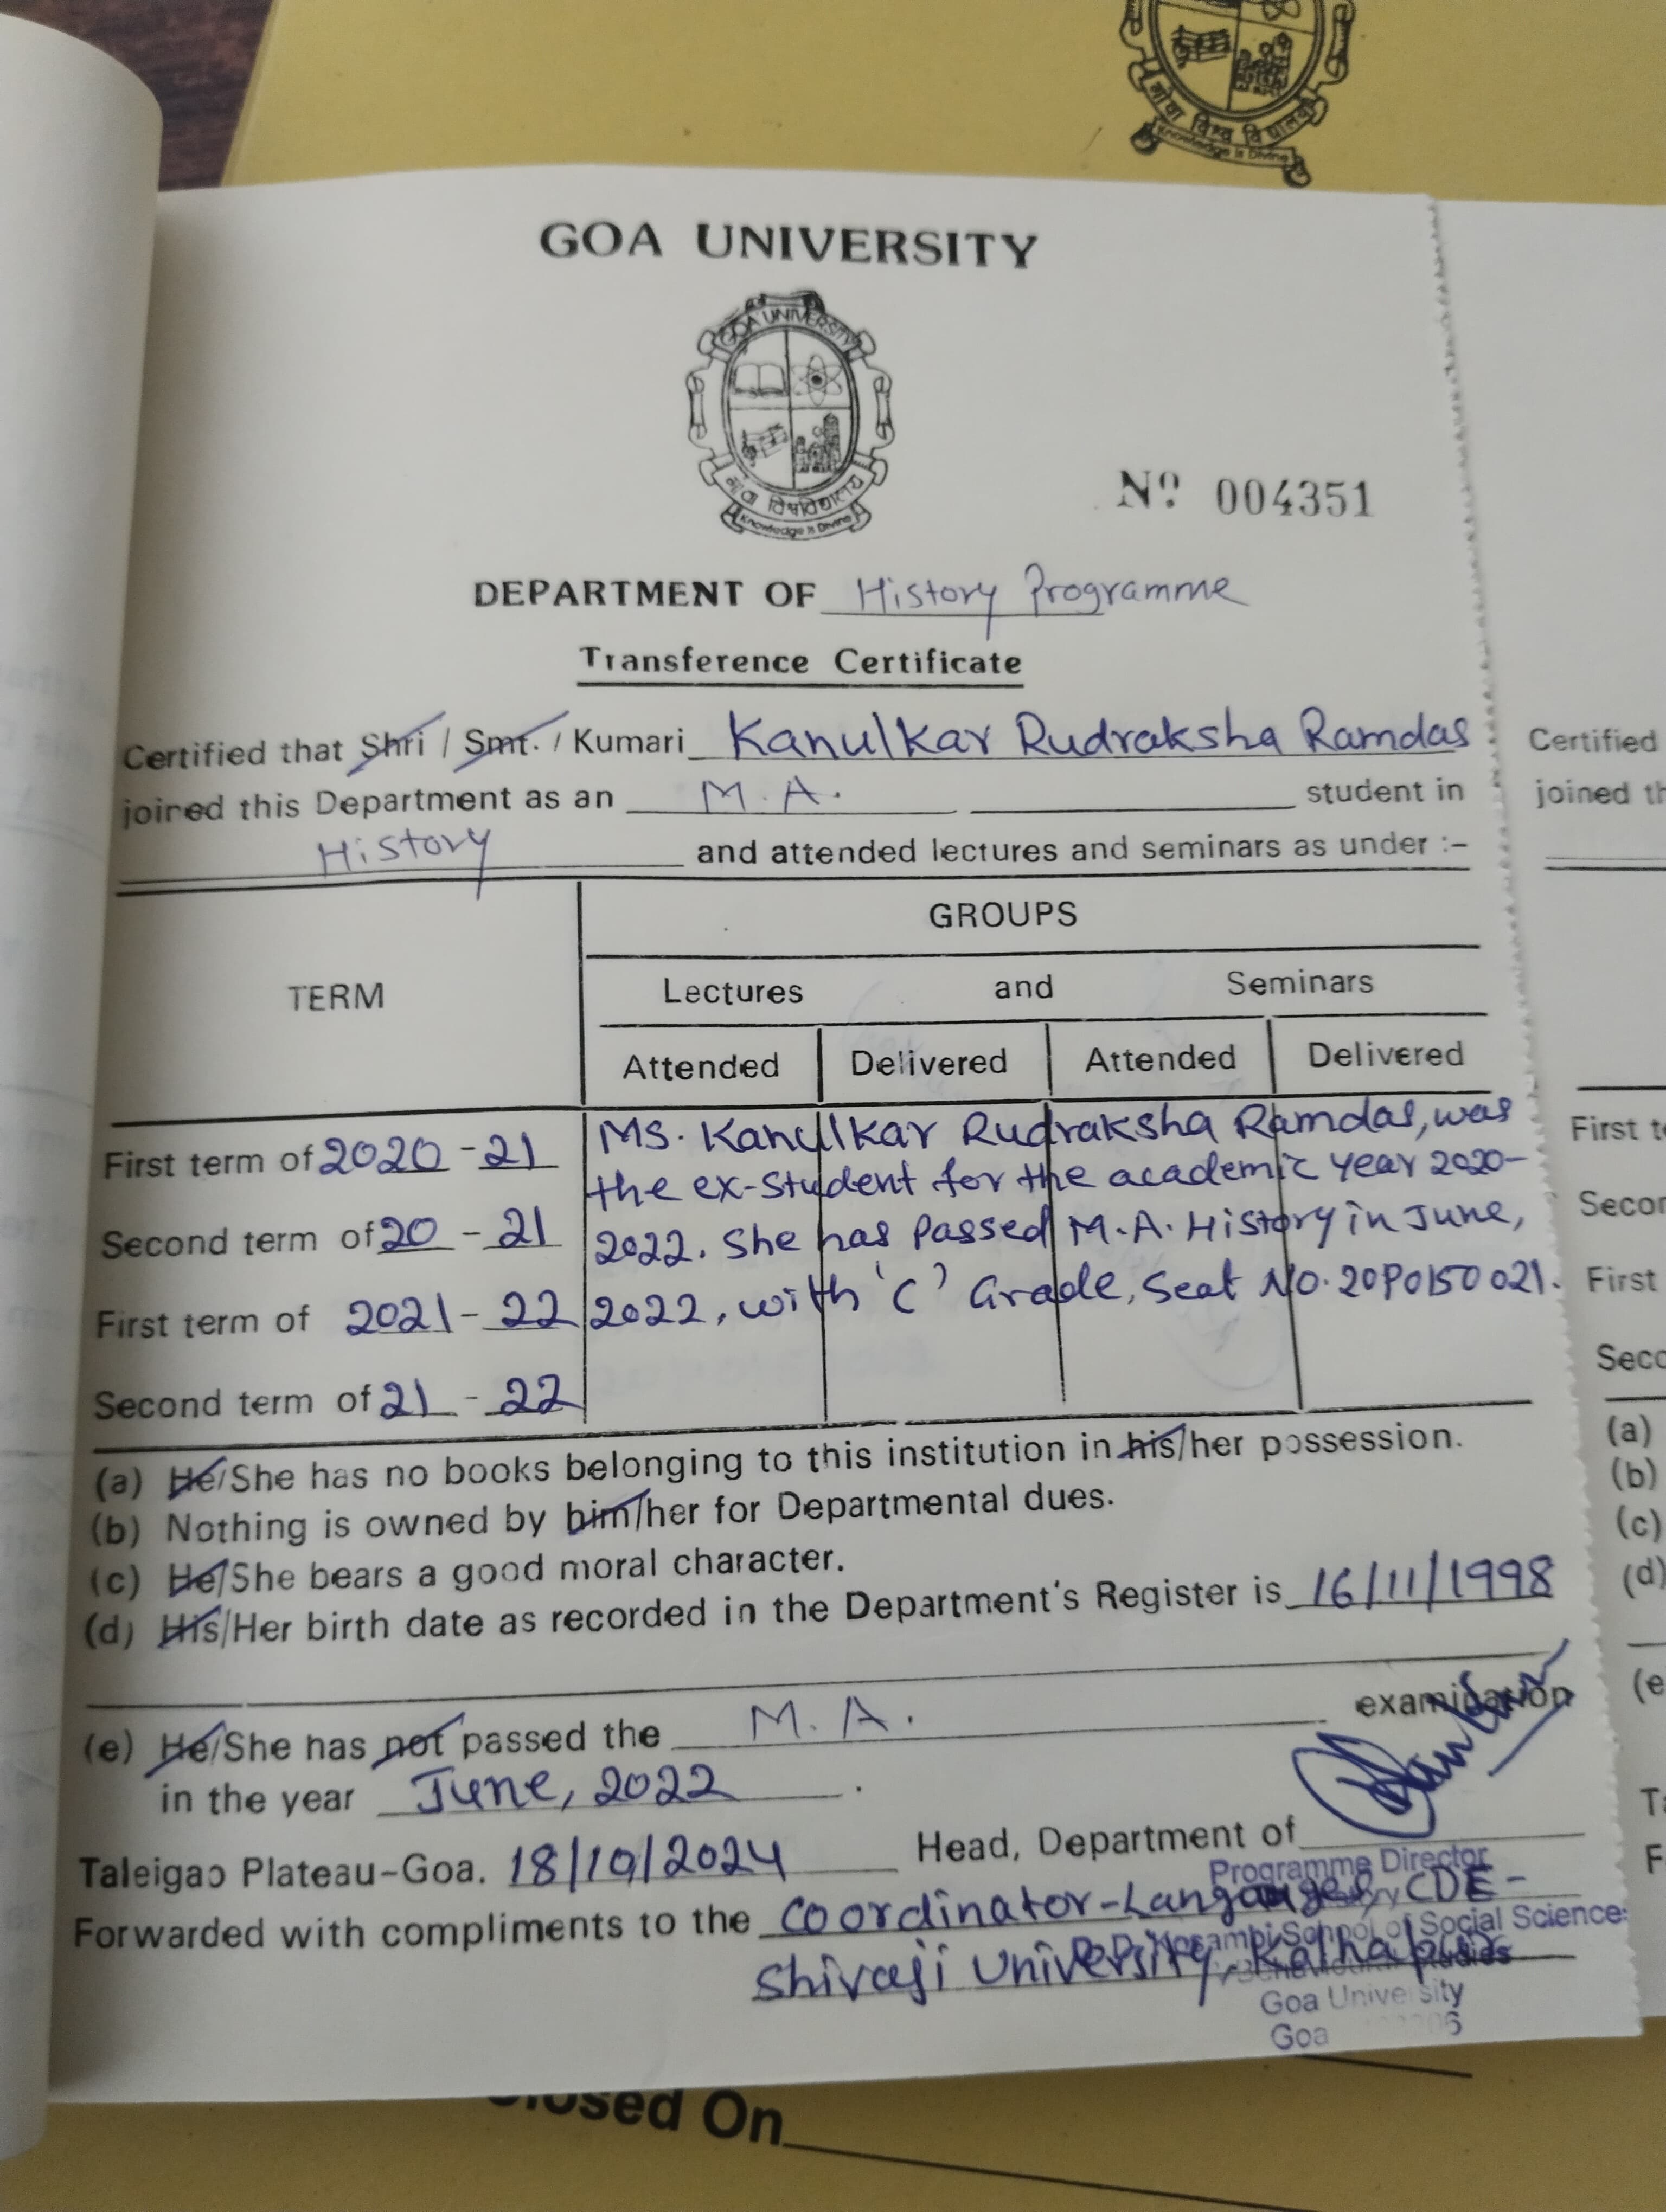 गोवा विश्व विद्यालय
Knowledge is Divine
GOA UNIVERSITY
GOA UNIVERSITY
Knowledge is Divine
Nº 004351
DEPARTMENT OF History Programme
Transference Certificate
Certified that Shri / Smt. / Kumari Kanulkar Rudraksha Ramdas
joined this Department as an M.A. student in
History and attended lectures and seminars as under :-
TERM
GROUPS
Lectures and Seminars
Attended Delivered Attended Delivered
First term of 2020 - 21 Ms. Kanulkar Rudraksha Ramdas, was
the ex-student for the academic year 2020-
Second term of 20 - 21 2022. She has passed M.A. History in June,
First term of 2021 - 22 2022, with 'C' Grade, Seat No. 20P0150021.
Second term of 21 - 22
(a) He/She has no books belonging to this institution in his/her possession.
(b) Nothing is owned by him/her for Departmental dues.
(c) He/She bears a good moral character.
(d) His/Her birth date as recorded in the Department's Register is 16/11/1998
(e) He/She has not passed the M.A. examination
in the year June, 2022.
Taleigao Plateau-Goa. 18/10/2024 Head, Department of
Programme Director
Forwarded with compliments to the Coordinator-Languages, CDE-
Shivaji University, Kolhapur
School of Social Science
Goa University
Goa
Closed On
Certified
joined th
First t
Secon
First
Seco
(a)
(b)
(c)
(d)
(e